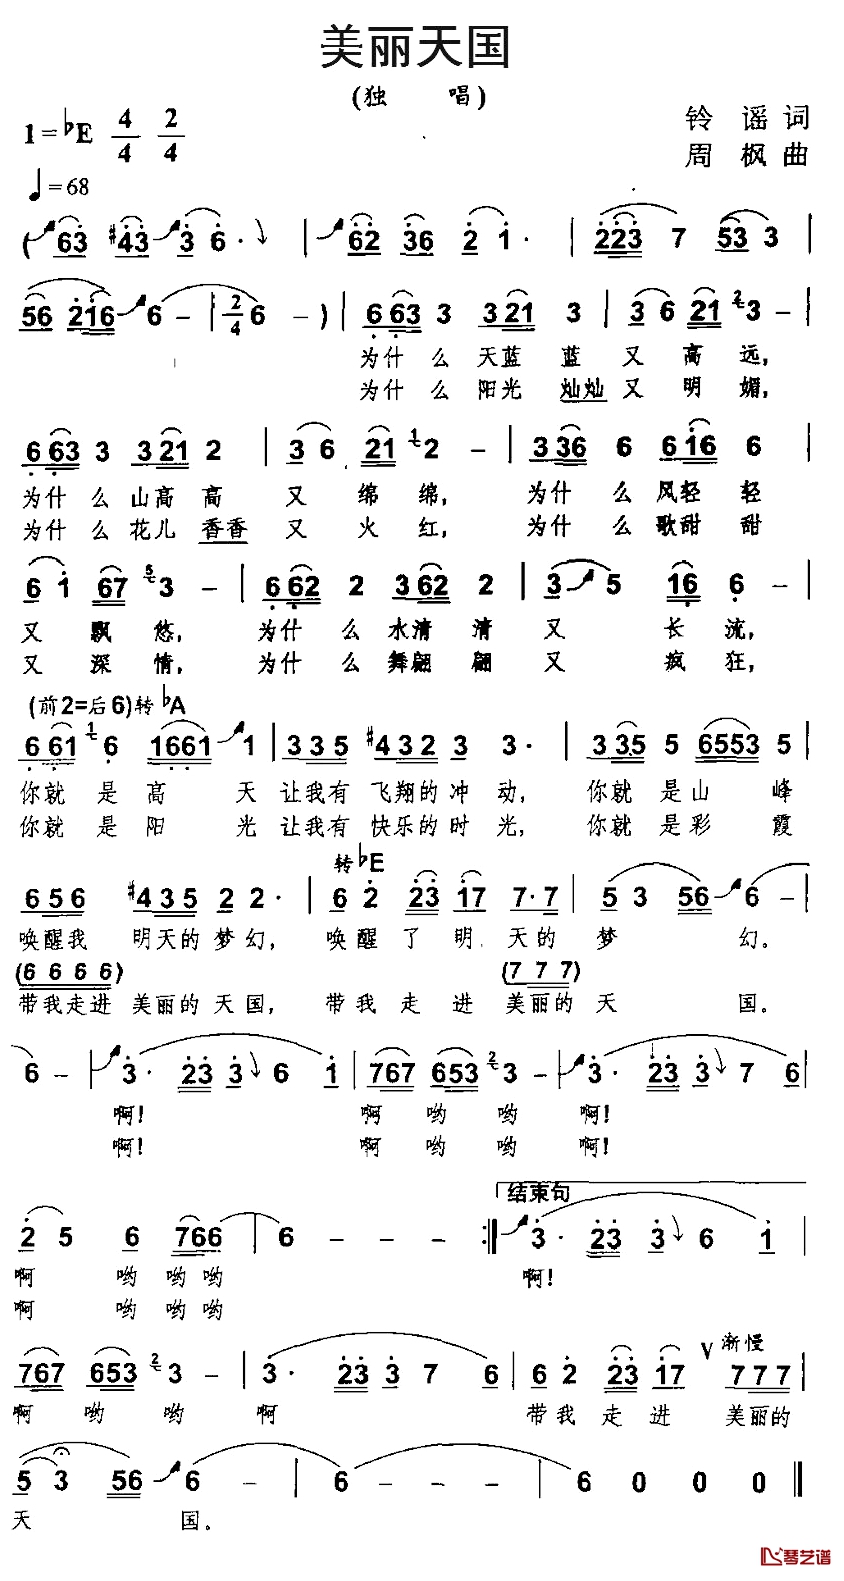 美丽天国
(独 唱)
1=♭E 4/4 2/4
铃 谣 词
周 枫 曲
♩=68
(63 #43 3 6· | 62 36 2 1· | 223 7 53 3 |
56 216 6 - | 2/4 6 -) | 663 3 321 3 | 3 6 21 3 - |
为什么天蓝蓝又高远,
为什么阳光灿灿又明媚,
663 3 321 2 | 3 6 21 2 - | 336 6 616 6 |
为什么山高高又绵绵, 为什么风轻轻
为什么花儿香香又火红, 为什么歌甜甜
6 1 67 3 - | 662 2 362 2 | 3 5 16 6 - |
又飘悠, 为什么水清清又长流,
又深情, 为什么舞翩翩又疯狂,
(前2=后6)转♭A
661 6 1661 1 | 335 #432 3 3· | 335 5 6553 5 |
你就是高天让我有飞翔的冲动, 你就是山峰
你就是阳光让我有快乐的时光, 你就是彩霞
转♭E
656 #435 2 2· | 6 2 23 17 7·7 | 5 3 56 6 - |
唤醒我明天的梦幻, 唤醒了明天的梦幻。
(6 6 6 6) (7 7 7)
带我走进美丽的天国, 带我走进美丽的天国。
6 - | 3· 23 3 6 1 | 767 653 3 - | 3· 23 3 7 6 |
啊! 啊哟哟啊!
啊! 啊哟哟啊!
结束句
2 5 6 766 | 6 - - - :‖ 3· 23 3 6 1 |
啊哟哟哟 啊!
啊哟哟哟
渐慢
767 653 3 - | 3· 23 3 7 6 | 6 2 23 17 V 777 |
啊哟哟啊 带我走进美丽的
5 3 56 6 - | 6 - - - | 6 0 0 0 ‖
天国。
琴艺谱